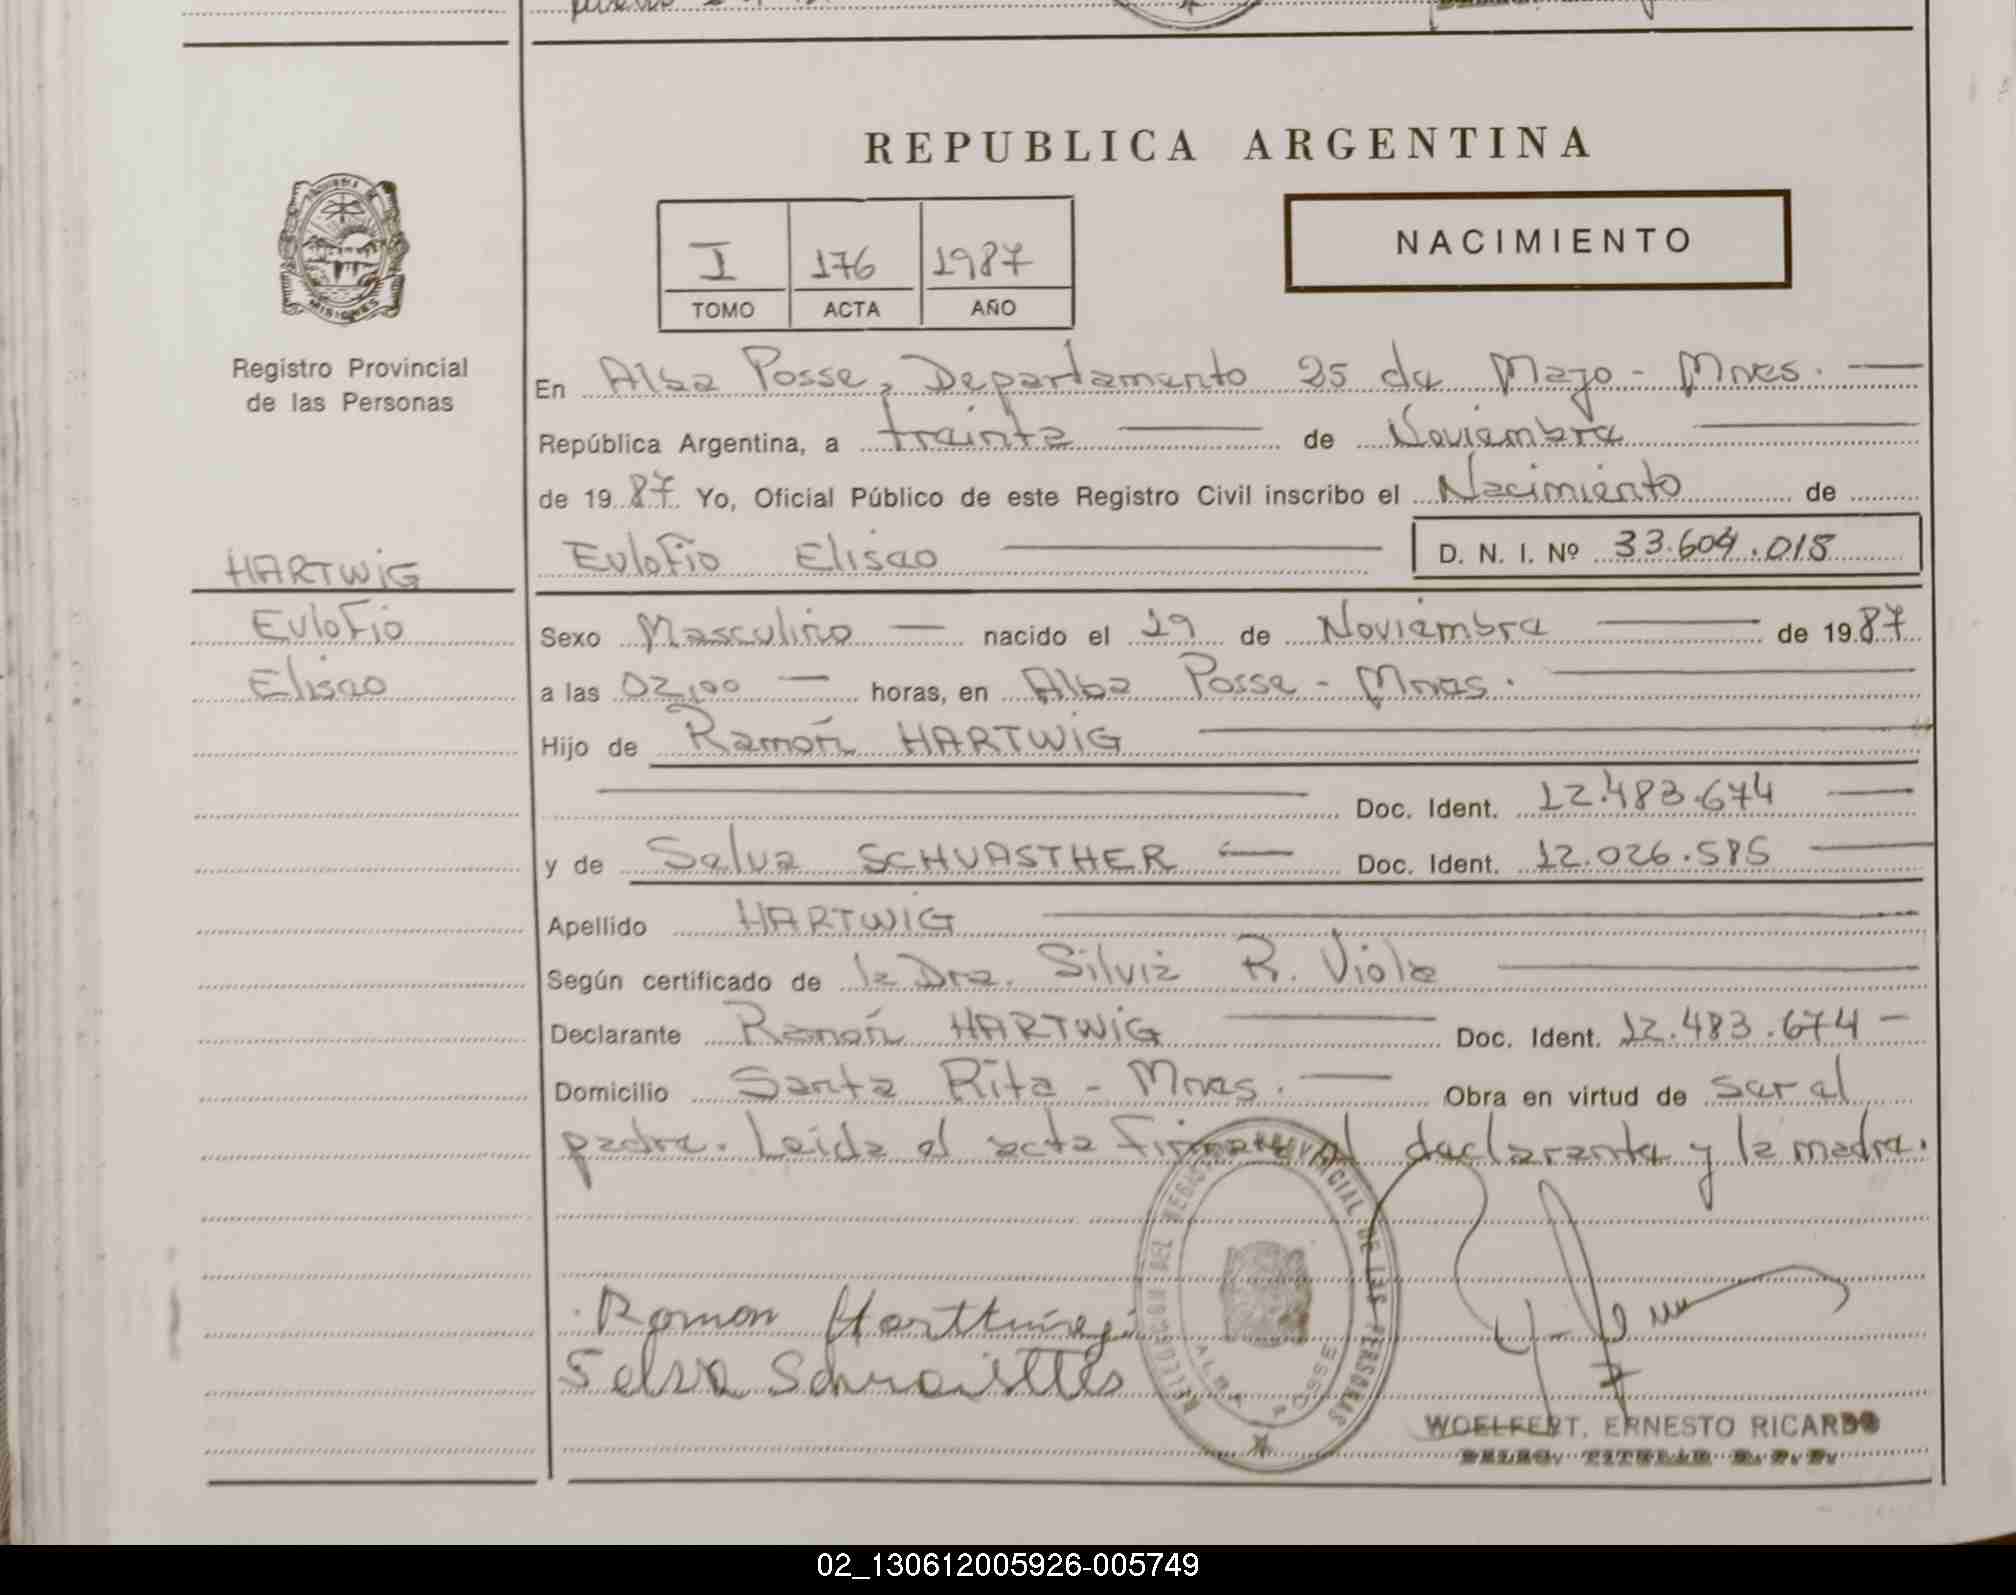 REPUBLICA ARGENTINA
MISIONES
Registro Provincial
de las Personas
I 176 1987
TOMO ACTA AÑO
NACIMIENTO
En Alba Posse, Departamento 25 de Mayo - Mnes.
República Argentina, a treinta de Noviembre
de 1987 Yo, Oficial Público de este Registro Civil inscribo el Nacimiento de
Eulofio Eliseo D. N. I. Nº 33.604.015
HARTWiG
Eulofio
Eliseo
Sexo Masculino nacido el 19 de Noviembre de 1987
a las 02,00 horas, en Alba Posse - Mnes.
Hijo de Ramón HARTWiG
Doc. Ident. 12.483.674
y de Selva SCHUASTHER Doc. Ident. 12.026.585
Apellido HARTWiG
Según certificado de la Dra. Silvia R. Viola
Declarante Ramón HARTWiG Doc. Ident. 12.483.674
Domicilio Santa Rita - Mnes. Obra en virtud de ser el
padre. Leida el acta firman el declarante y la madre.
Ramon
Selva
DELEGACION DEL REGISTRO PROVINCIAL DE LAS PERSONAS
ALBA POSSE
WOELFERT, ERNESTO RICARDO
02_130612005926-005749